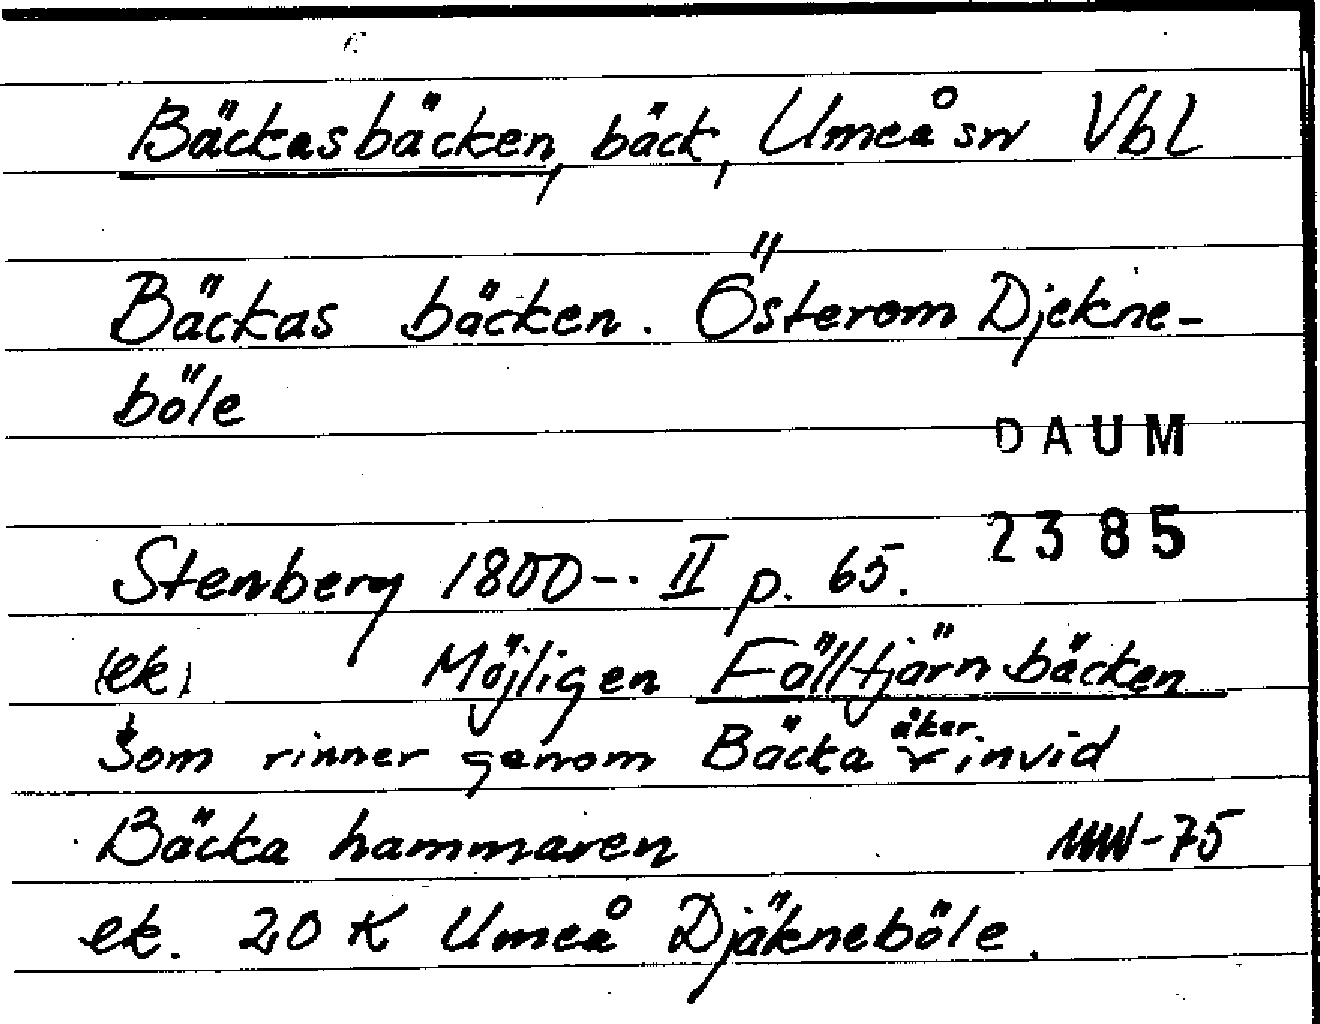 Bäckasbäcken, bäck, Umeå sn Vbl
Bäckas bäcken. Österom Djekne-
böle
DAUM
2385
Stenberg 1800-. II p. 65.
(ek) Möjligen Fälltjärnbäcken
som rinner genom Bäcka åker invid
Bäcka hammaren MW-75
ek. 20 K Umeå Djäkneböle.